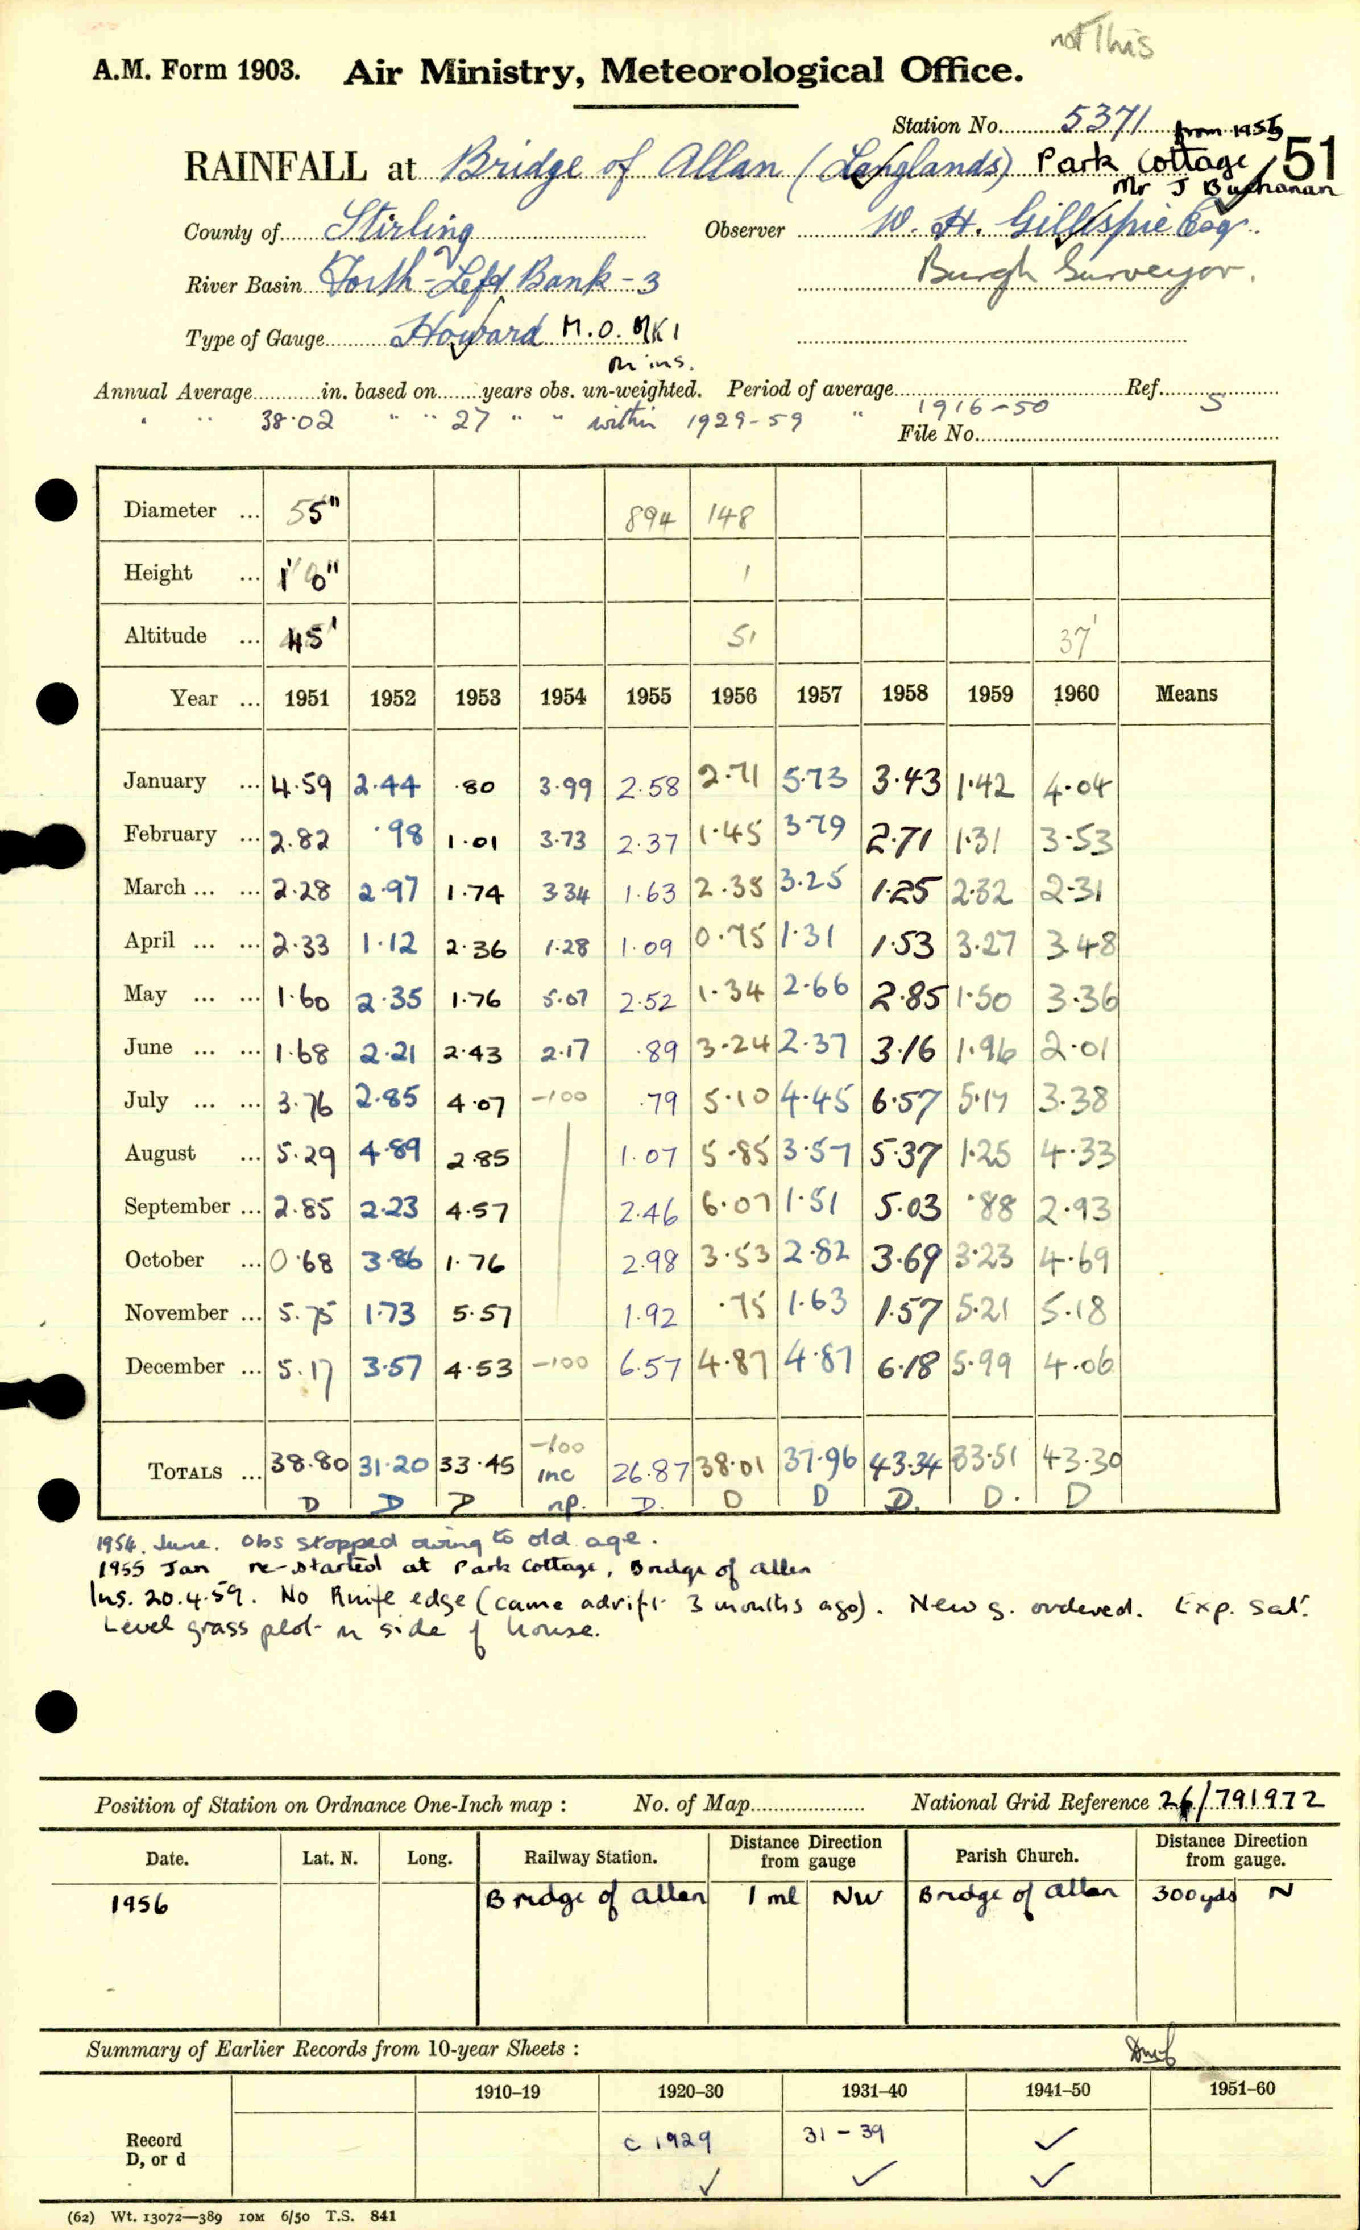 not This
A.M. Form 1903. Air Ministry, Meteorological Office.
Station No. 5371 from 1955
RAINFALL at Bridge of Allan (Langlands) Park Cottage /51
Mr J Buchanan
County of Stirling Observer W. H. Gillespie Esq.
River Basin Forth - Left Bank - 3 Burgh Surveyor.
Type of Gauge Howard M.O. MK 1
Annual Average in. based on years obs. un-weighted. Period of average Ref.
" " 38.02 " " 27 " " within 1929-59 " 1916-50 S
File No.
Diameter ... 5" 894 148
Height ... 1' 0" 1
Altitude ... 45' 51 37'
Year ... 1951 1952 1953 1954 1955 1956 1957 1958 1959 1960 Means
January ... 4.59 2.44 .80 3.99 2.58 2.71 5.73 3.43 1.42 4.04
February ... 2.82 .98 1.01 3.73 2.37 1.45 3.79 2.71 1.31 3.53
March ... ... 2.28 2.97 1.74 3.34 1.63 2.35 3.25 1.25 2.32 2.31
April ... ... 2.33 1.12 2.36 1.28 1.09 0.75 1.31 1.53 3.27 3.48
May ... ... 1.60 2.35 1.76 5.07 2.52 1.34 2.66 2.85 1.50 3.36
June ... ... 1.68 2.21 2.43 2.17 .89 3.24 2.37 3.16 1.96 2.01
July ... ... 3.76 2.85 4.07 -100 .79 5.10 4.45 6.57 5.17 3.38
August ... 5.29 4.89 2.85 1.07 5.85 3.57 5.37 1.25 4.33
September ... 2.85 2.23 4.57 2.46 6.07 1.51 5.03 .88 2.93
October ... 0.68 3.86 1.76 2.98 3.53 2.82 3.69 3.23 4.69
November ... 5.75 1.73 5.57 1.92 .75 1.63 1.57 5.21 5.18
December ... 5.17 3.57 4.53 -100 6.57 4.87 4.87 6.18 5.99 4.06
TOTALS ... 38.80 31.20 33.45 -100 inc 26.87 38.01 37.96 43.34 33.51 43.30
D D D np. D. D D D. D. D
1954. June. Obs stopped owing to old age.
1955 Jan re-started at Park Cottage, Bridge of Allan
Ins. 20.4.59. No Knife edge (came adrift 3 months ago). New g. ordered. Exp. sat.
Level grass plot N side of house.
Position of Station on Ordnance One-Inch map : No. of Map National Grid Reference 26/791972
Date. Lat. N. Long. Railway Station. Distance Direction from gauge Parish Church. Distance Direction from gauge.
1956 Bridge of Allan 1 ml NW Bridge of Allan 300yds N
Summary of Earlier Records from 10-year Sheets :
1910–19 1920–30 1931–40 1941–50 1951–60
Record D, or d c 1929 31 - 39 ✓
✓ ✓ ✓
(62) Wt. 13072—389 10M 6/50 T.S. 841